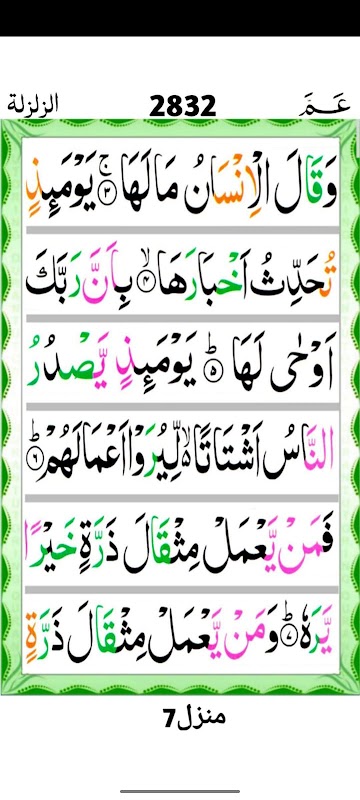 الزلزلة 2832 عَمَّ
وَقَالَ الْاِنْسَانُ مَا لَهَا ۚ‏ ﴿۳﴾ يَوْمَئِذٍ
تُحَدِّثُ اَخْبَارَهَا ۙ‏ ﴿۴﴾ بِاَنَّ رَبَّكَ
اَوْحٰى لَهَا ؕ‏ ﴿۵﴾ يَوْمَئِذٍ يَّصْدُرُ
النَّاسُ اَشْتَاتًا ۙ لِّيُرَوْا اَعْمَالَهُمْ ؕ‏ ﴿۶﴾
فَمَنْ يَّعْمَلْ مِثْقَالَ ذَرَّةٍ خَيْرًا
يَّرَهٗ ؕ‏ ﴿۷﴾ وَمَنْ يَّعْمَلْ مِثْقَالَ ذَرَّةٍ
منزل7